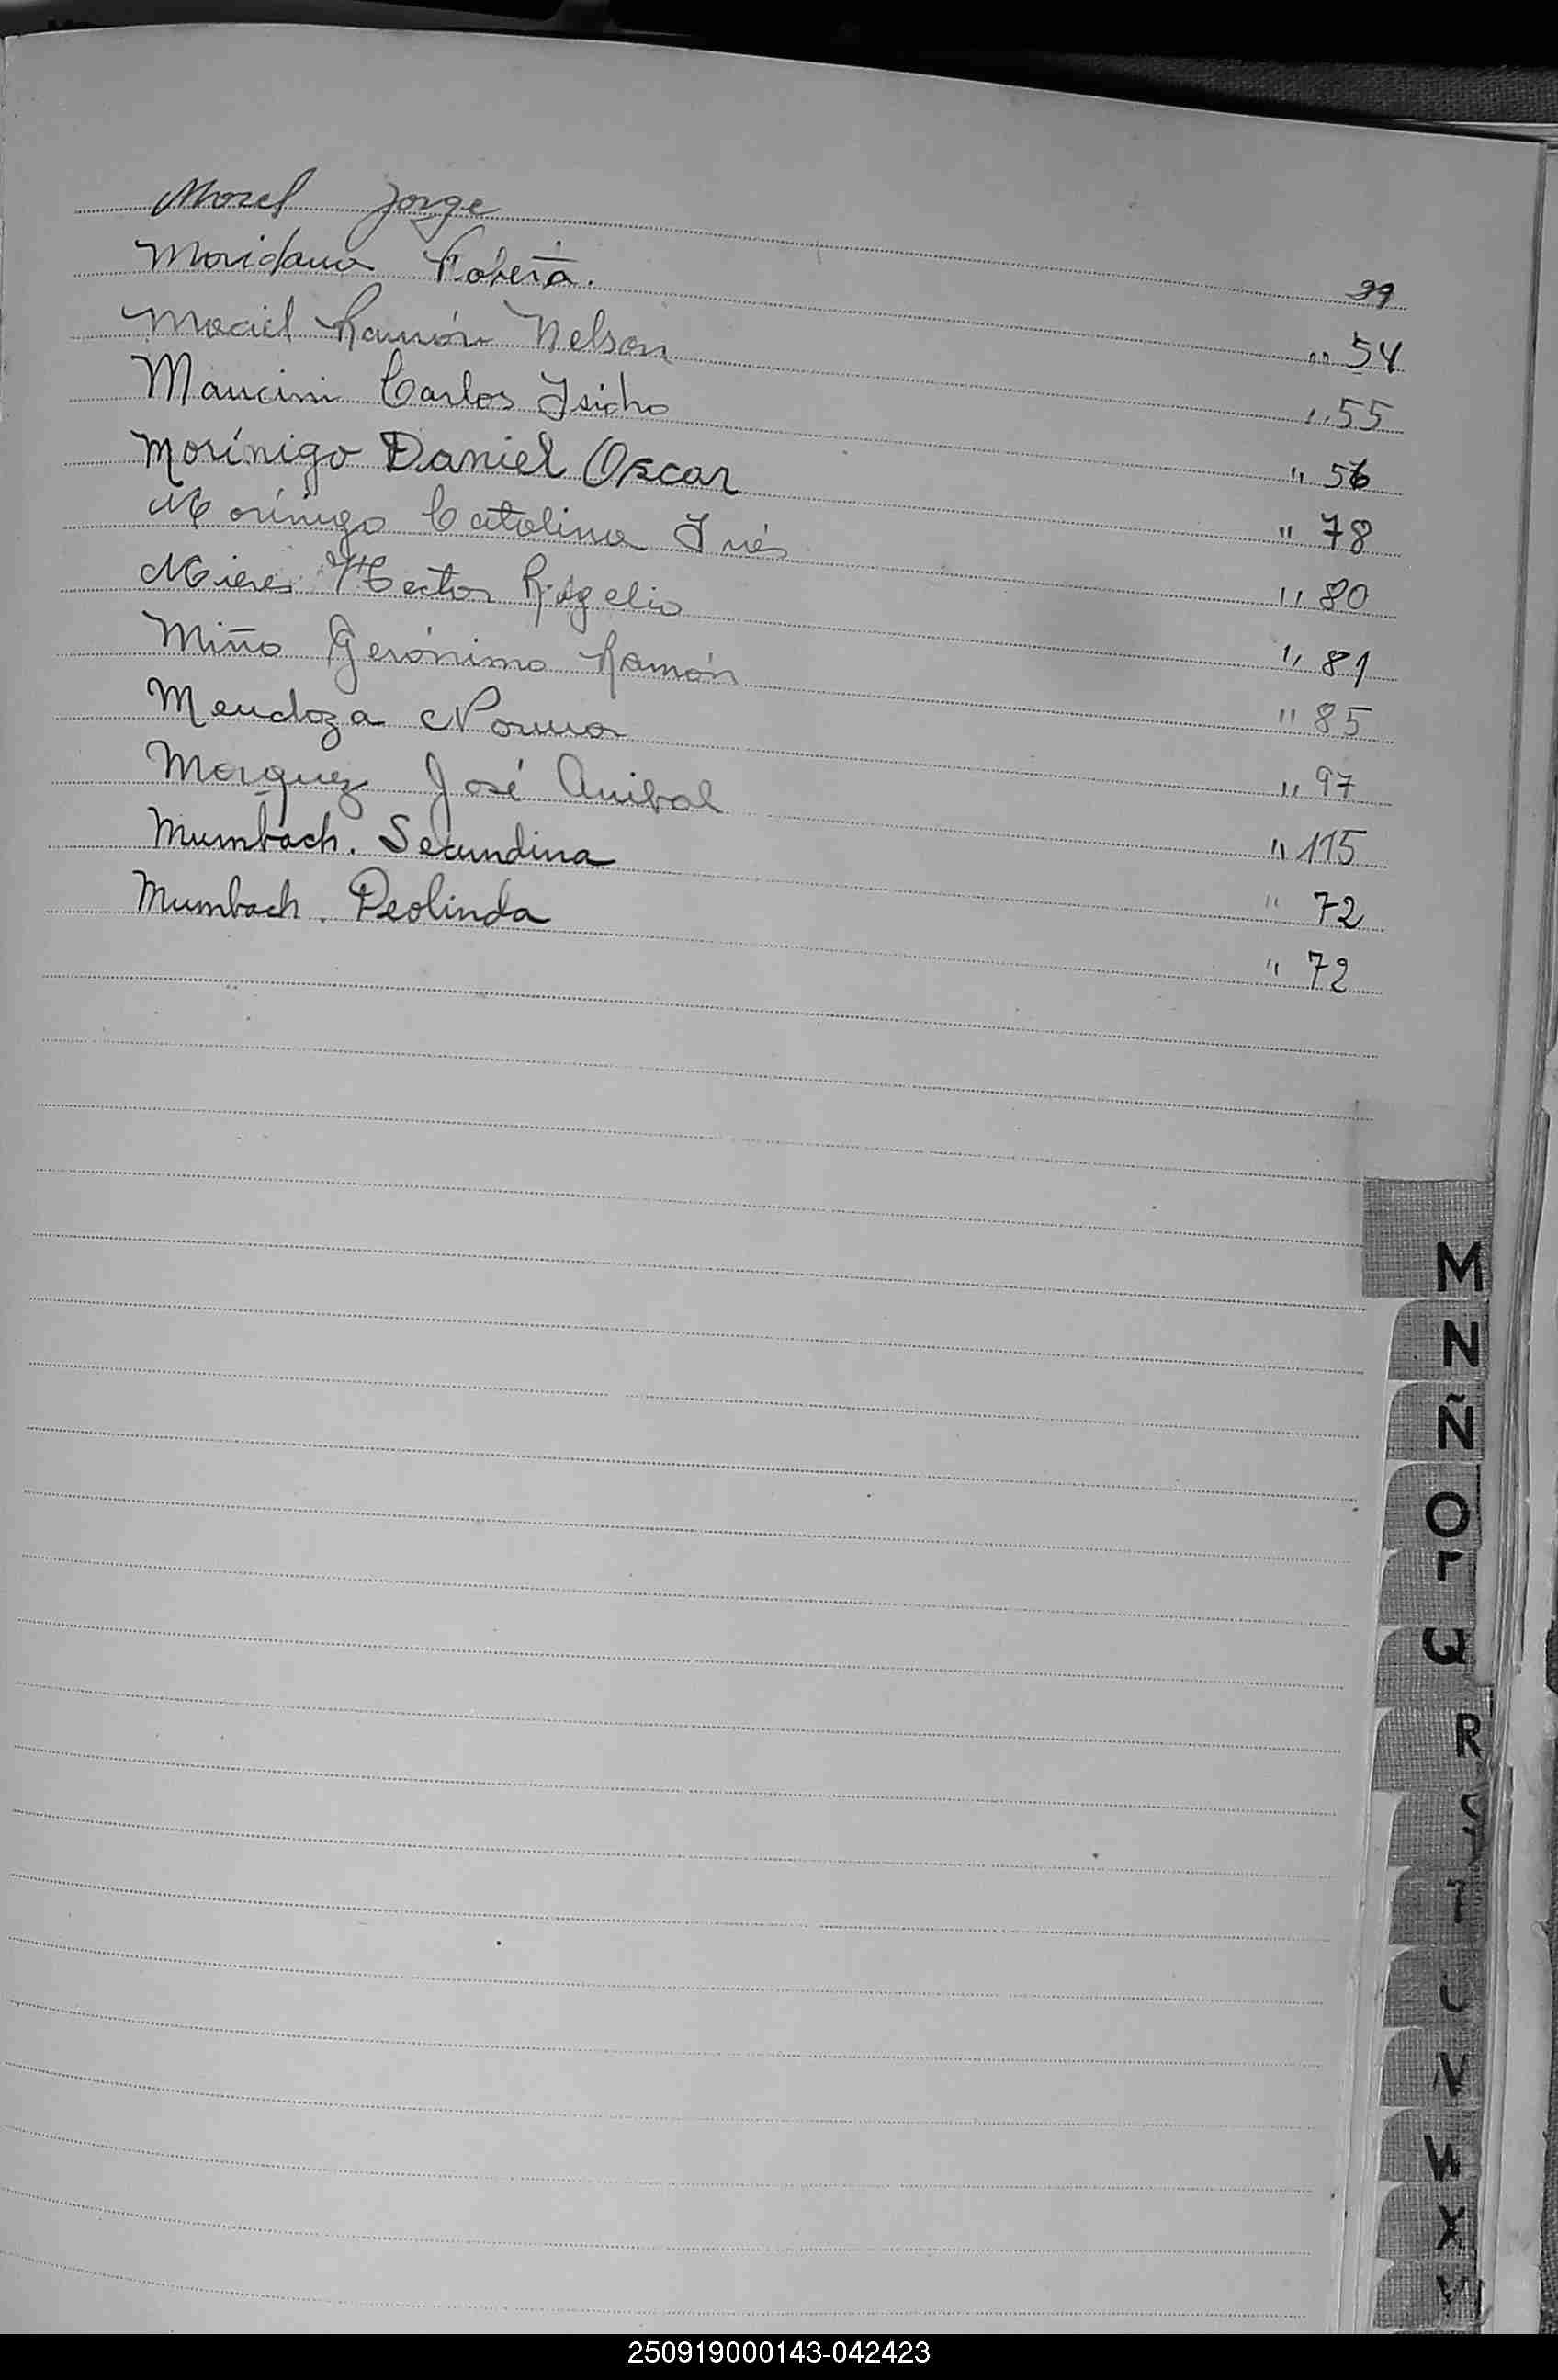 Morel Jorge 39
Maridana Roberta. " 54
Maciel Ramón Nelson " 55
Mancini Carlos Isidro " 56
Morínigo Daniel Oscar " 78
Morínigo Catalina Inés " 80
Mieres Hector Rogelio " 81
Miño Gerónimo Ramón " 85
Mendoza Norma " 97
Marquez José Anibal " 115
Mumbach. Secundina " 72
Mumbach. Deolinda " 72
M
N
Ñ
O
P
Q
R
S
T
U
V
W
X
250919000143-042423